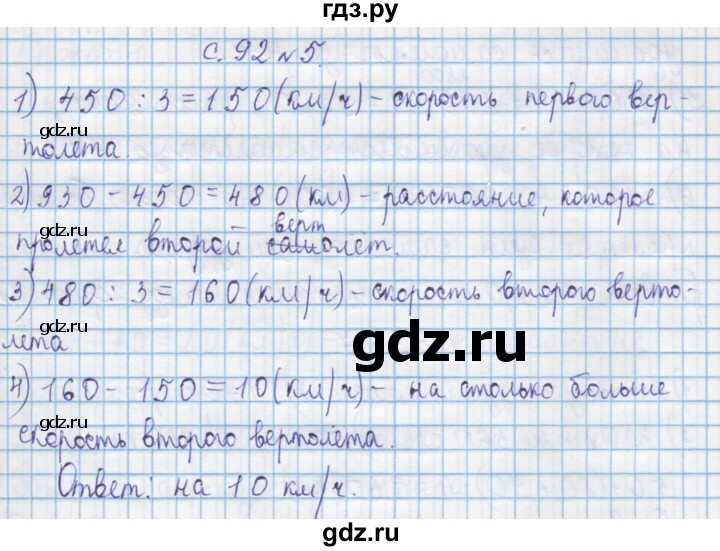 гдз.ру
с. 92 №5.
1) 450 : 3 = 150 (км/ч) – скорость первого вер-
gdz.ru
толета.
2) 930 – 450 = 480 (км) – расстояние, которое
gdz.ru
верт
пролетел второй самолёт.
3) 480 : 3 = 160 (км/ч) – скорость второго верто-
gdz.ru
лета
gdz.ru
4) 160 – 150 = 10 (км/ч) – на столько больше
gdz.ru
скорость второго вертолёта.
Ответ: на 10 км/ч.
gdz.ru
gdz.ru